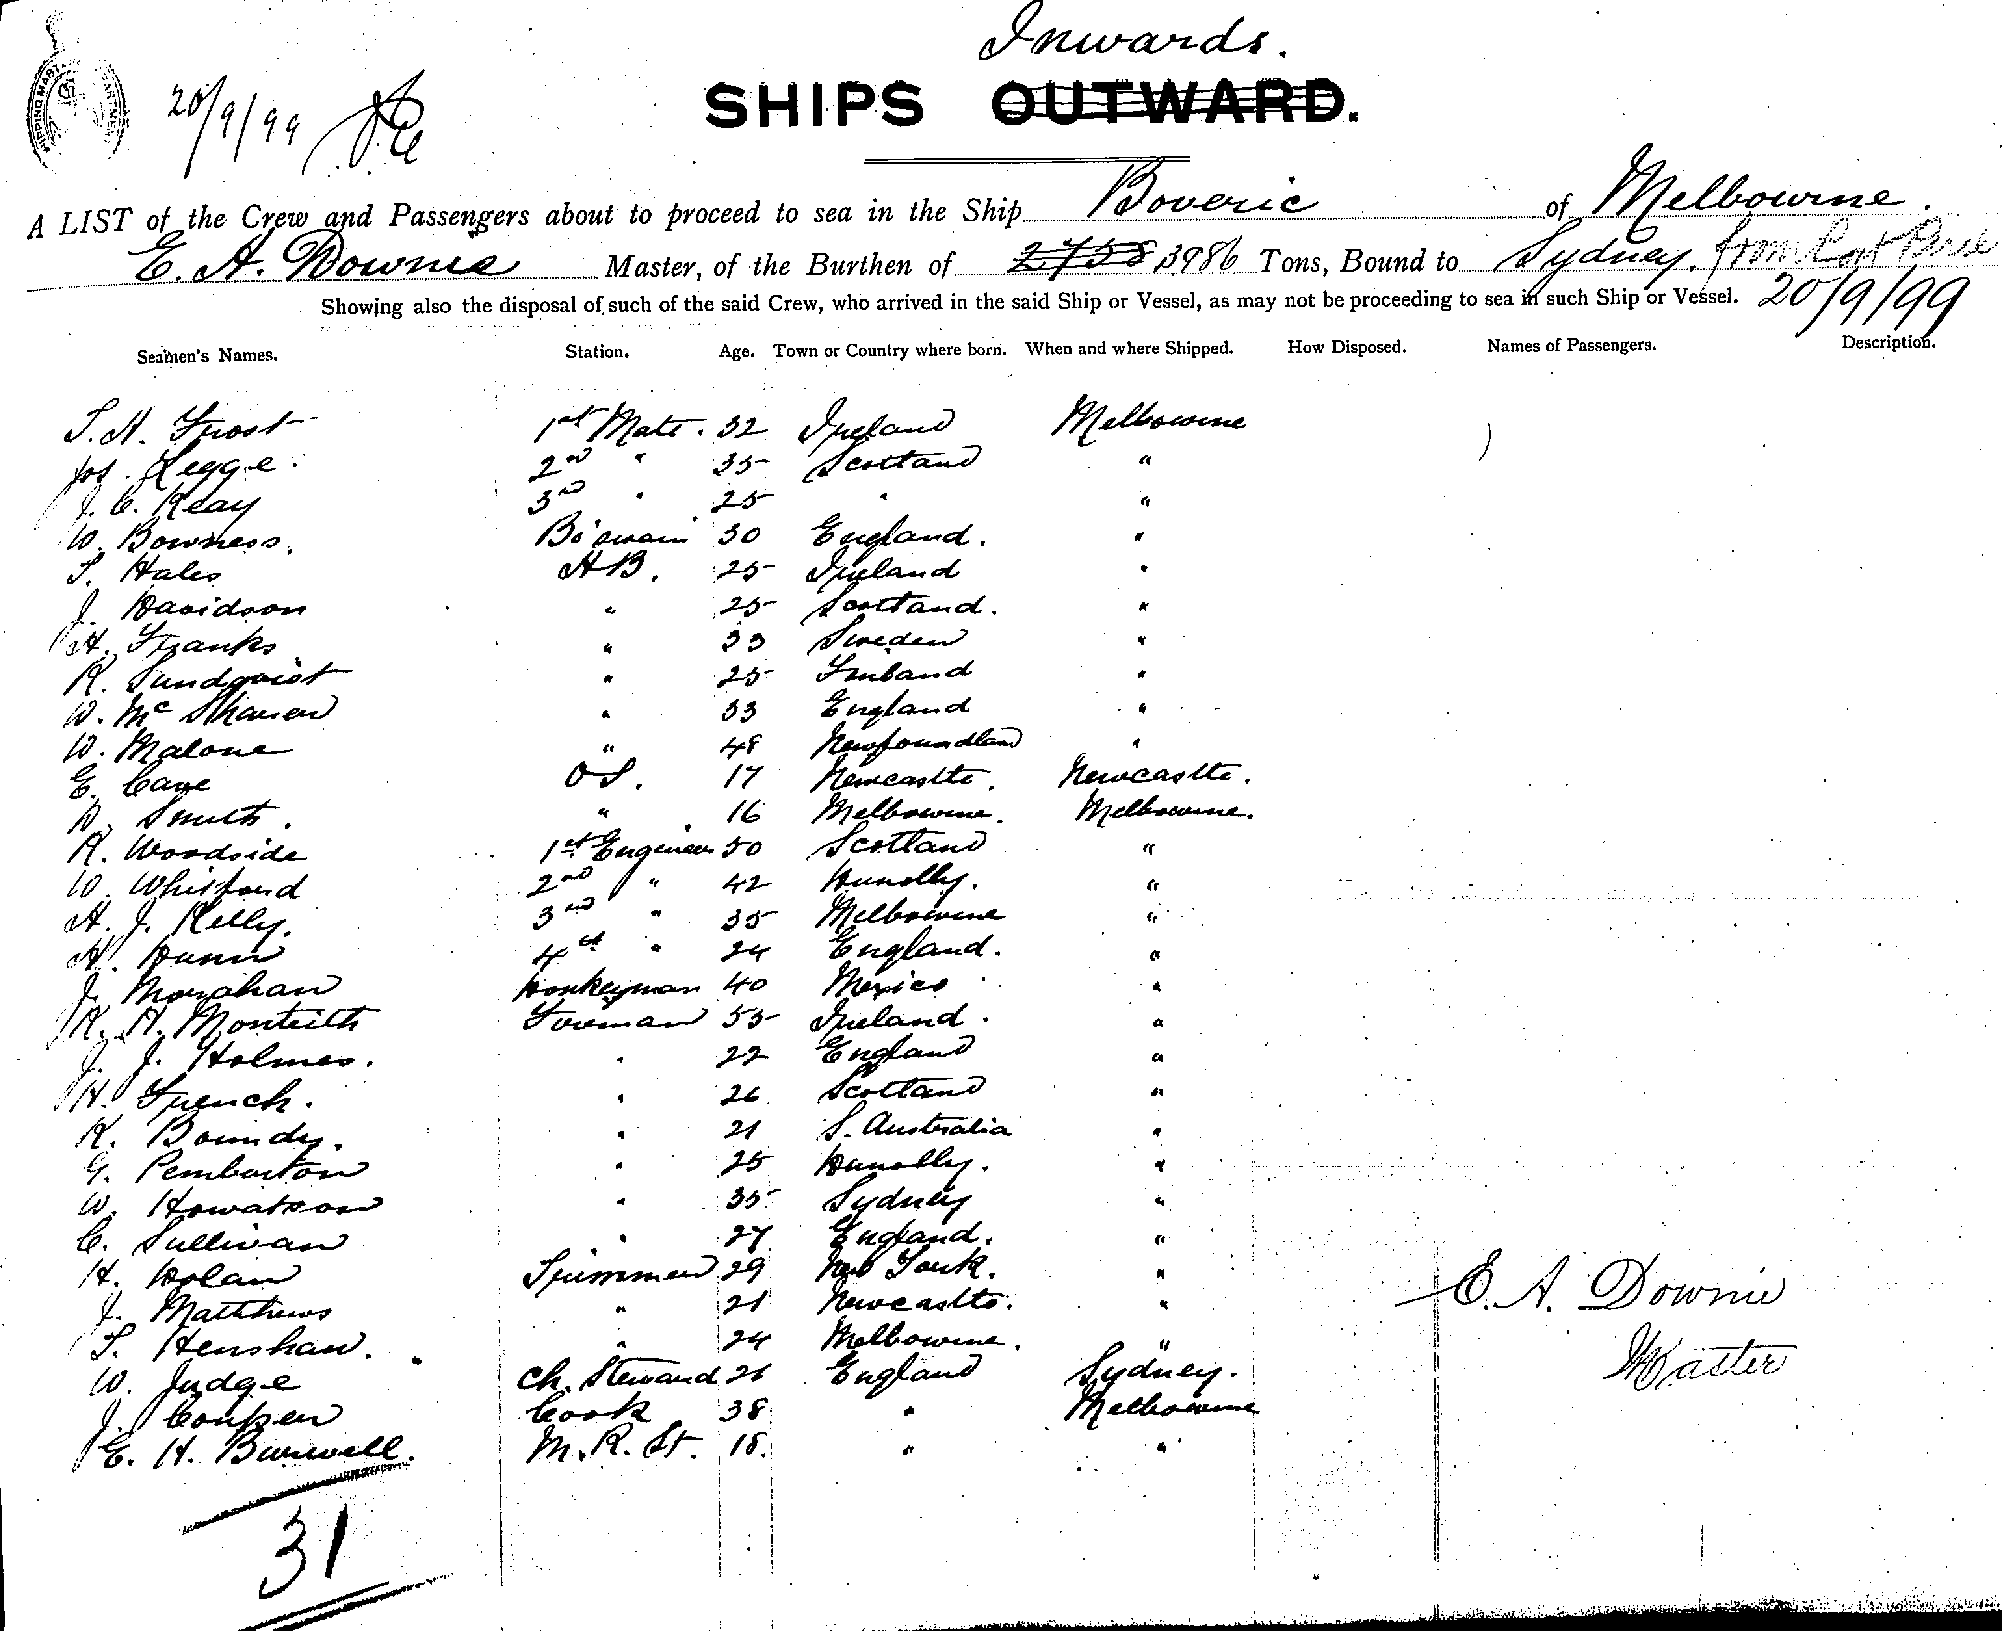 Inwards.
20/9/99
SHIPS OUTWARD.
A LIST of the Crew and Passengers about to proceed to sea in the Ship Boveric of Melbourne.
E. A. Downie Master, of the Burthen of 2758 3986 Tons, Bound to Sydney. from Port Pirie
Showing also the disposal of such of the said Crew, who arrived in the said Ship or Vessel, as may not be proceeding to sea in such Ship or Vessel. 20/9/99
Seamen's Names. Station. Age. Town or Country where born. When and where Shipped. How Disposed. Names of Passengers. Description.
S. A. Frost 1st Mate. 32 Ireland Melbourne
Jos. Legge. 2nd " 35 Scotland "
J. C. Keay 3rd " 25 " "
W. Bowness. Bo'swain 30 England. "
S. Hales A.B. 25 Ireland "
J. Davidson " 25 Scotland. "
A. Franks " 33 Sweden "
R. Sundqvist " 25 Finland "
W. Mc " 33 England "
W. Malone " 48 Newfoundland "
E. Cave O.S. 17 Newcastle. Newcastle.
D. Smith. " 16 Melbourne. Melbourne.
R. Woodside 1st Engineer 50 Scotland "
W. Whitford 2nd " 42 Dunolly. "
A. J. Kelly. 3rd " 35 Melbourne "
A. Dunn 4th " 24 England. "
J. Monahan Donkeyman 40 Mexico "
R. A. Monteith Fireman 53 Ireland. "
J. J. Holmes. " 22 England "
H. French. " 26 Scotland "
R. Boundy. " 21 S. Australia "
G. Pemberton " 25 Dunolly. "
W. Howatson " 35 Sydney "
C. Sullivan " 27 England. "
H. Dolan Trimmer 29 New York. "
J. Matthews " 21 Newcastle. "
S. Henshaw. " 24 Melbourne. "
W. Judge Ch. Steward 26 England Sydney.
J. Couper Cook 38 " Melbourne
E. H. Burwell. M. R. St. 18. " "
E. A. Downie
Master
31